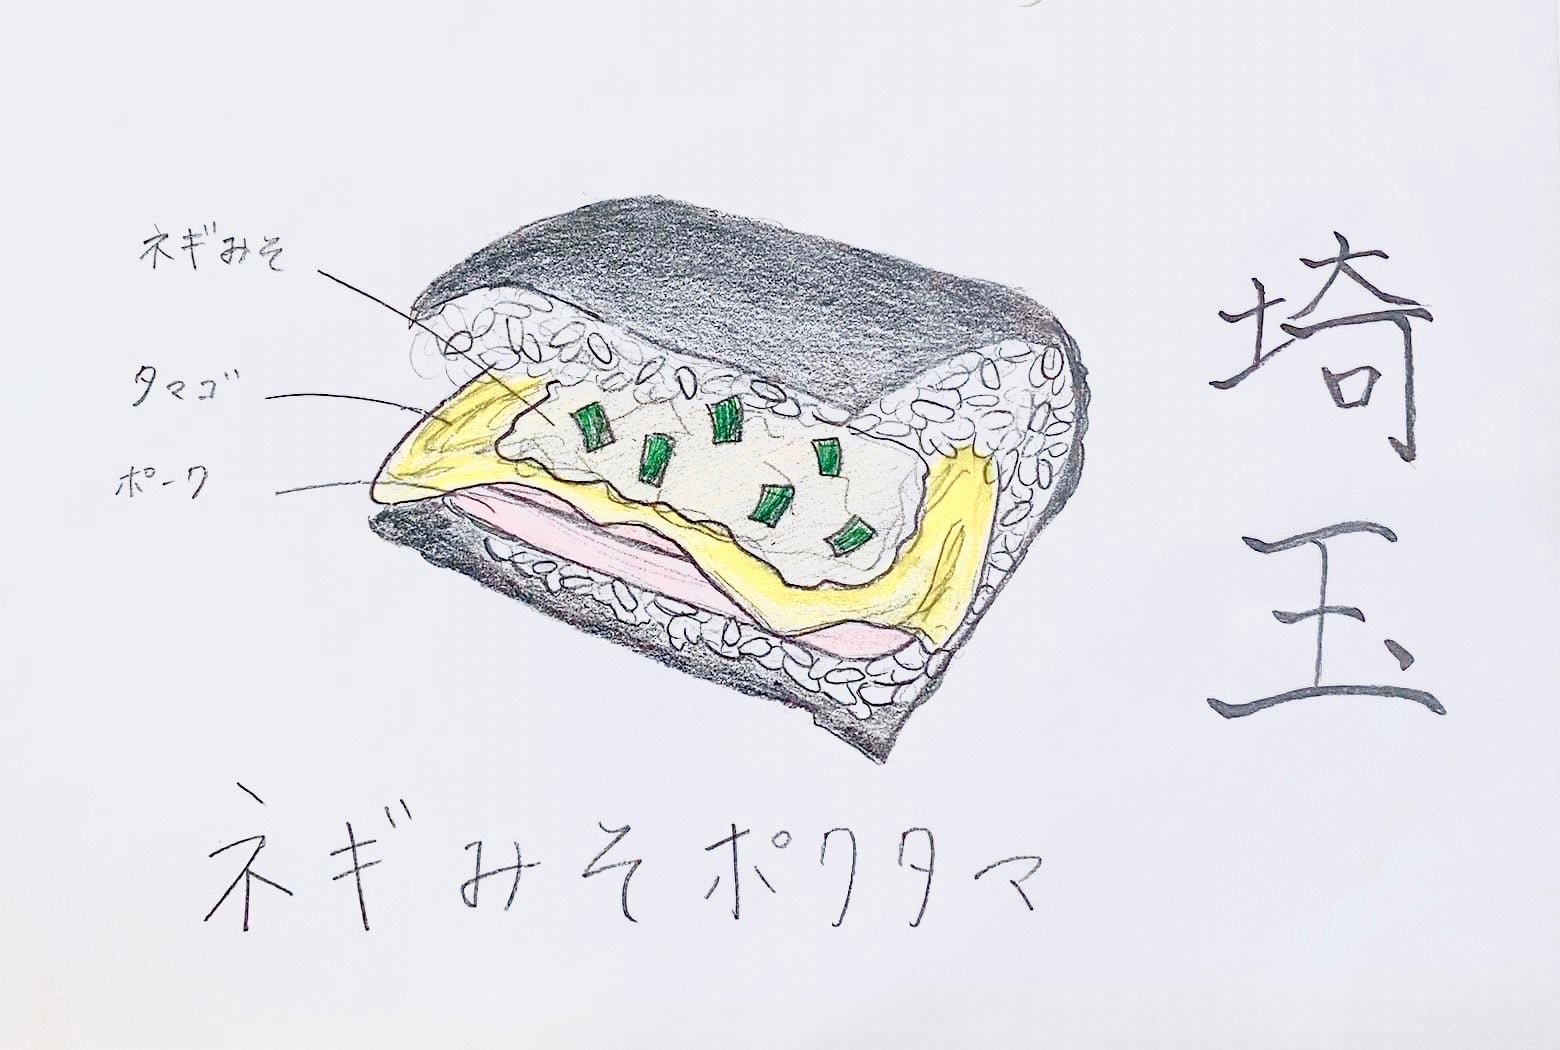 埼玉
ネギみそ
タマゴ
ポーク
ネギみそポクタマ